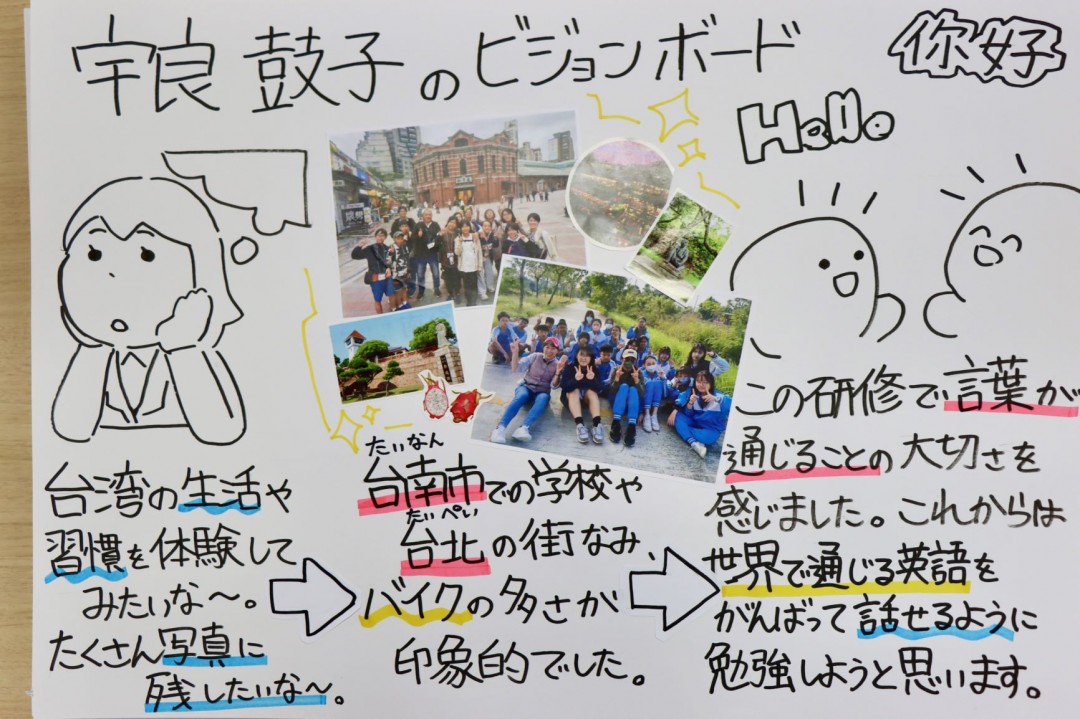 宇良 鼓子のビジョンボード
你好
Hello
台湾の生活や
習慣を体験して
みたいな〜。
たくさん写真に
残したいな〜。
たいなん
台南市での学校や
たいぺい
台北の街なみ、
バイクの多さが
印象的でした。
この研修で言葉が
通じることの大切さを
感じました。これからは
世界で通じる英語を
がんばって話せるように
勉強しようと思います。